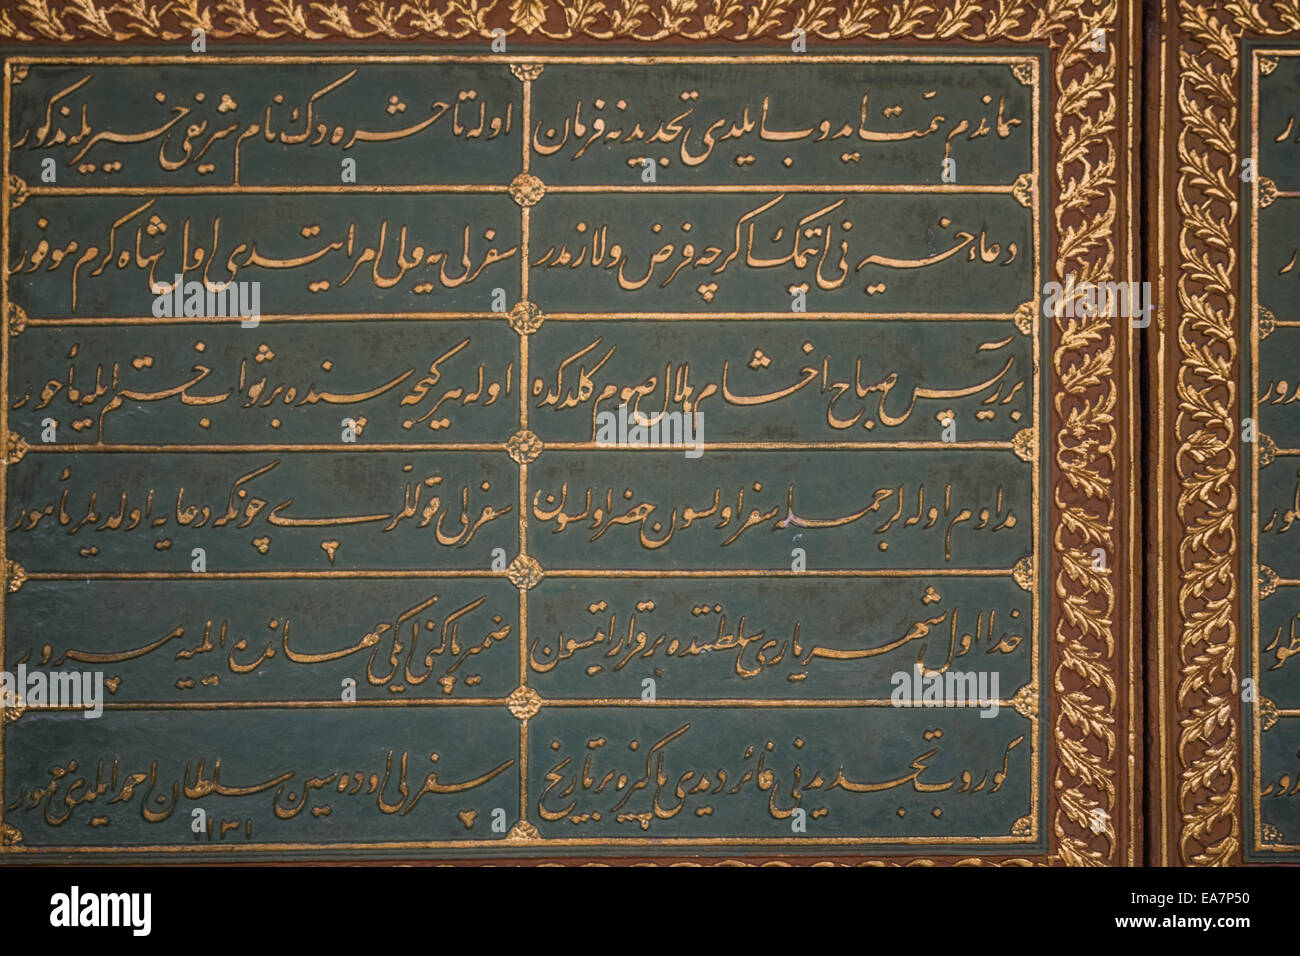 هماندم همت ایدوب ایلدی تجدیدنه فرمان
اوله تا حشره دك نام شریفی خیر یله مذكور
دعاء خیرنی ایتمك اكرچه فرض و لازمدر
سفرلی یه ولی امر ایتدی اول شاه كرم موفور
صباح اخشام هلال صوم كلدكده
اوله هر كیجه سنده بر ثواب ختم ایله مأجور
مداوم اوله لر جمله سفر اولسون حضر اولسون
سفرلی قوللری چونكه دعایه اولدیلر مأمور
خدا اول شهریاری سلطنتده برقرار ایتسون
ضمیر پاكنی ایكی جهانده ایلیه مسرور
كوروب تجدیدنی فائز دیدی پاكیزه بر تاریخ
سفرلی اوده سین سلطان احمد ایلدی معمور
١١٣١
alamy
Image ID: EA7P50
www.alamy.com